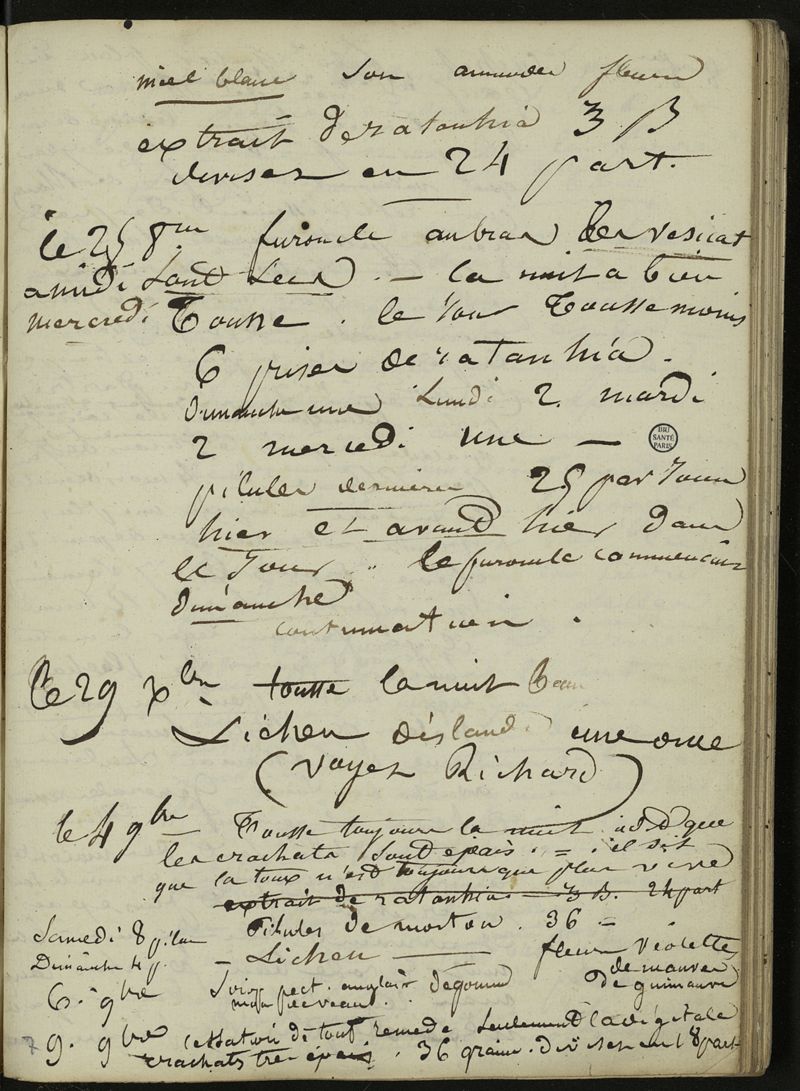 miel blanc son amandes fleurs
extrait de ratanhia ʒ ß
divisez en 24 part.
le 25 8bre furoncle au bras les vesicat
a midi sont secs. — la nuit a bien
mercredi Tousse. le Jour Tousse moins
6 prises de ratanhia.
dimanche une Lundi 2 mardi
2 mercredi une —
BIU
SANTÉ
PARIS
pilules dernieres 25 par Jour
hier et avand hier dans
le Jour le furoncle commencait
dimanche
continuation.
le 29 Xbre tousse la nuit beau
Lichen d'islande une once
(voyez Richard)
le 4 9bre Tousse toujours la nuit que
les crachats sont epais. = . il dit
que la toux n'est toujours que plus vive
extrait de ratanhia ʒ ß. 24 part
Samedi 8 pilu Pilules de morton. 36 =
Dimanche 4 p. — Lichen — fleurs violettes
de mauve
6. 9bre pect. anglais de gomme de guimauve
mou de veau.
9. 9bre cessation de tout remede seulement la digitale
crachats tres epais. 36 grains. divisez en 18 part